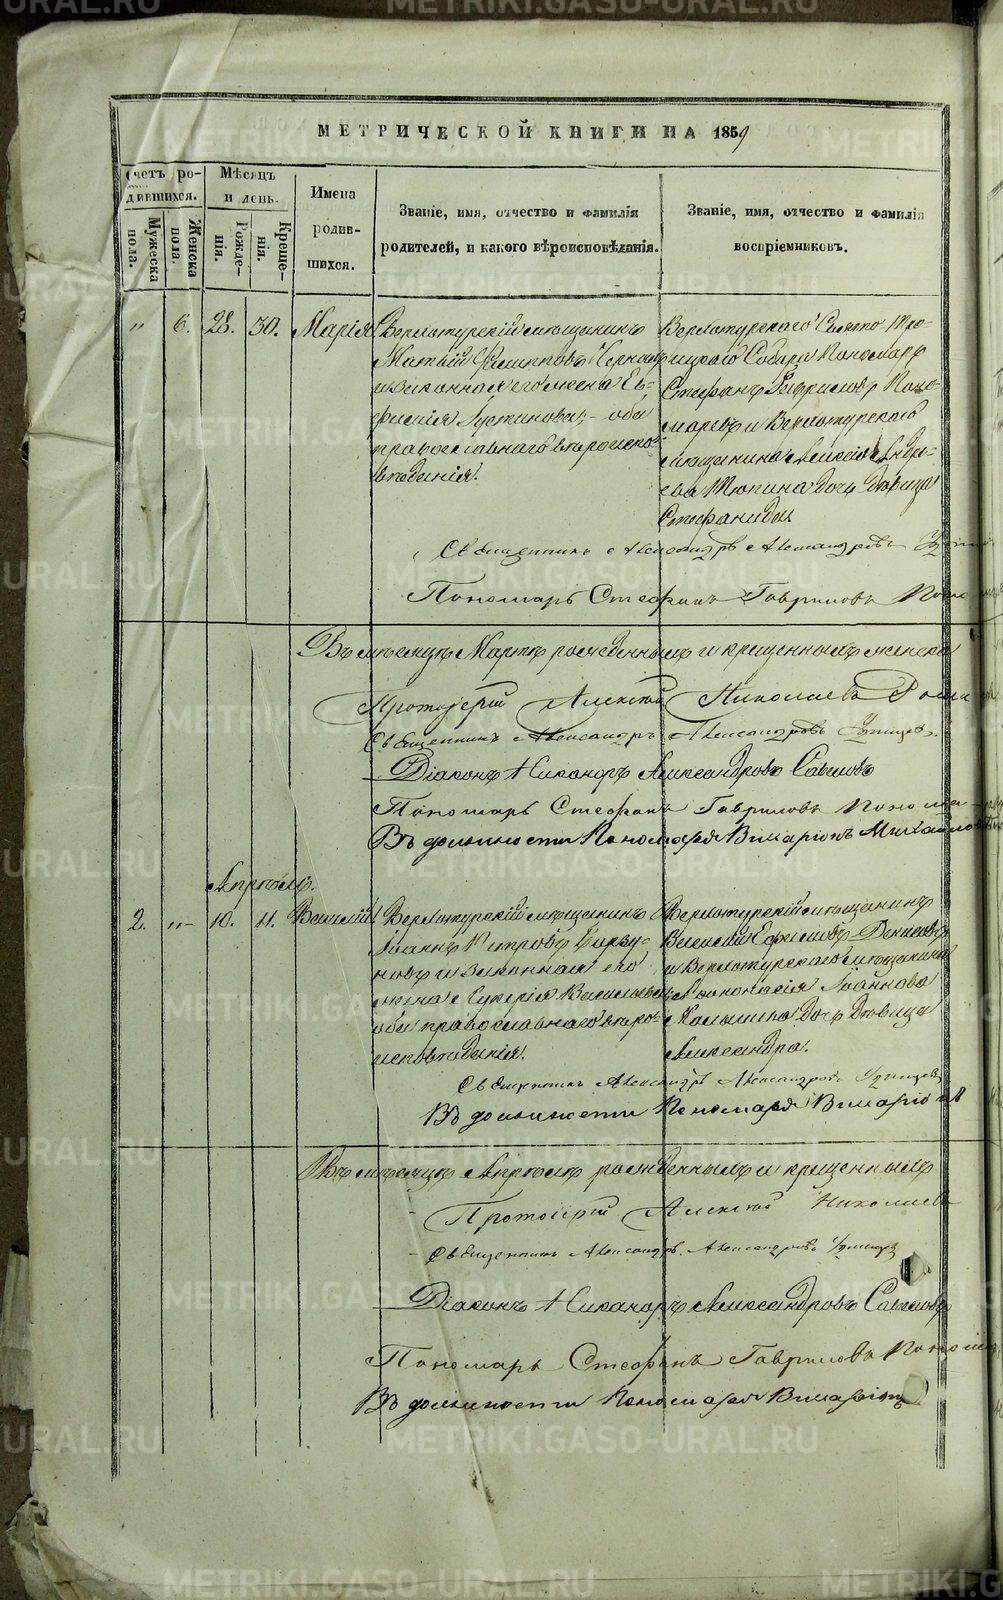 МЕТРИЧЕСКОЙ КНИГИ НА 1859
Счетъ ро-
дившихся.
Мужеска
пола.
Женска
пола.
Мѣсяцъ
и день.
Рожде-
нія.
Креще-
нія.
Имена
родив-
шихся.
Званіе, имя, отчество и фамилія
родителей, и какого вѣроисповѣданія.
Званіе, имя, отчество и фамилія
воспріемниковъ.
" 6. 28. 30. Марія
Верхотурскій мѣщанинъ
Матѳій Филипповъ
и законная его жена Ев-
фимія Іустинова, оба
православнаго вѣроиспо-
вѣданія.
Верхотурскаго Свято Тро-
ицкаго Собора Пономарь
Стефанъ Гавриловъ Поно-
маревъ и Верхотурскаго
мѣщанина Алексія Андре-
ева Тюпина дочь Дѣвица
Стефанида
Священникъ Александръ Александровъ
Пономарь Стефанъ Гавриловъ
Въ мѣсяцѣ Мартѣ рожденныхъ и крещенныхъ женска
Протоіерей Алексій Николаевъ
Священникъ Александръ Александровъ
Діаконъ Никаноръ Александровъ
Пономарь Стефанъ Гавриловъ
Въ должности Пономаря Иларіонъ Михайловъ
Апрѣль.
2. " 10. 11. Василій
Верхотурскій мѣщанинъ
Іоаннъ Петровъ
и законная его
жена Гликерія Васильева,
оба православнаго вѣро-
исповѣданія.
Верхотурскій мѣщанинъ
Василій Ефимовъ Денисовъ
и Верхотурскаго мѣщанина
Аѳонасія Іоаннова
дочь Дѣвица
Александра.
Священникъ Александръ Александровъ
Въ должности Пономаря Иларіонъ
Въ мѣсяцѣ Апрѣлѣ рожденныхъ и крещенныхъ
Протоіерей Алексій Николаевъ
Священникъ Александръ Александровъ
Діаконъ Никаноръ Александровъ
Пономарь Стефанъ Гавриловъ
Въ должности Пономаря Иларіонъ